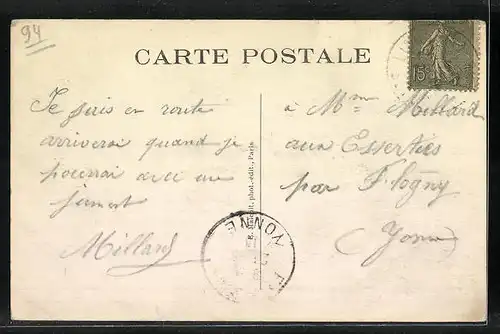 94
CARTE POSTALE
15
Je suis en route
arriverai quand je
pourrai avec une
jument
Millard
phot.-édit., Paris
à Mm Millard
aux Esserties
par Flogny
(Yonne)
YONNE